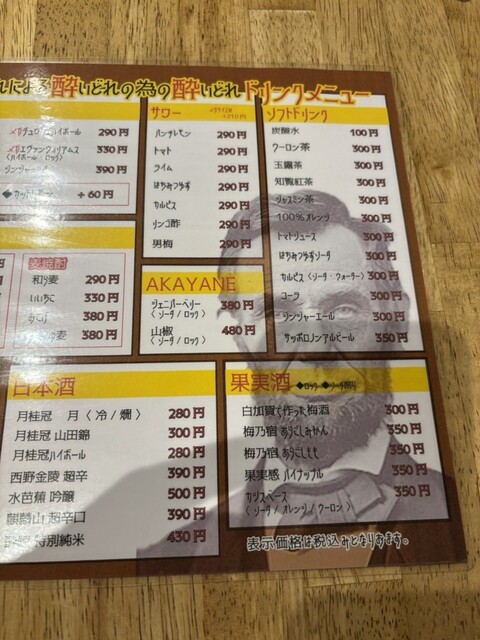 れによる酔いどれの為の酔いどれドリンクメニュー
ハイボール 290円
メガエヴァンウィリアムス 330円
〈ハイボール・ロック〉
ジンジャー 390円
+60円
サワー
パンチレモン 290円
トマト 290円
ライム 290円
はちみつゆず 290円
カルピス 290円
リンゴ酢 290円
男梅 290円
ソフトドリンク
炭酸水 100円
ウーロン茶 300円
玉露茶 300円
知覧紅茶 300円
ジャスミン茶 300円
100%オレンジ 300円
トマトジュース 300円
はちみつゆずソーダ 300円
カルピス〈ソーダ・ウォーター〉 300円
コーラ 300円
ジンジャーエール 300円
サッポロノンアルビール 350円
麦焼酎
和ら麦 290円
いいちこ 330円
380円
麦 380円
AKAYANE
ジュニパーベリー 380円
〈ソーダ/ロック〉
山椒 480円
〈ソーダ/ロック〉
日本酒
月桂冠 月〈冷/燗〉 280円
月桂冠 山田錦 300円
月桂冠ハイボール 280円
西野金陵 超辛 390円
水芭蕉 吟醸 500円
麒麟山 超辛口 390円
特別純米 430円
果実酒 ◆ロック ◆ソーダ割り
白加賀で作った梅酒 300円
梅乃宿 あらごしみかん 350円
梅乃宿 あらごしもも 350円
果実感 パイナップル 350円
カシスベース 350円
〈ソーダ/オレンジ/ウーロン〉
表示価格は税込みとなります。